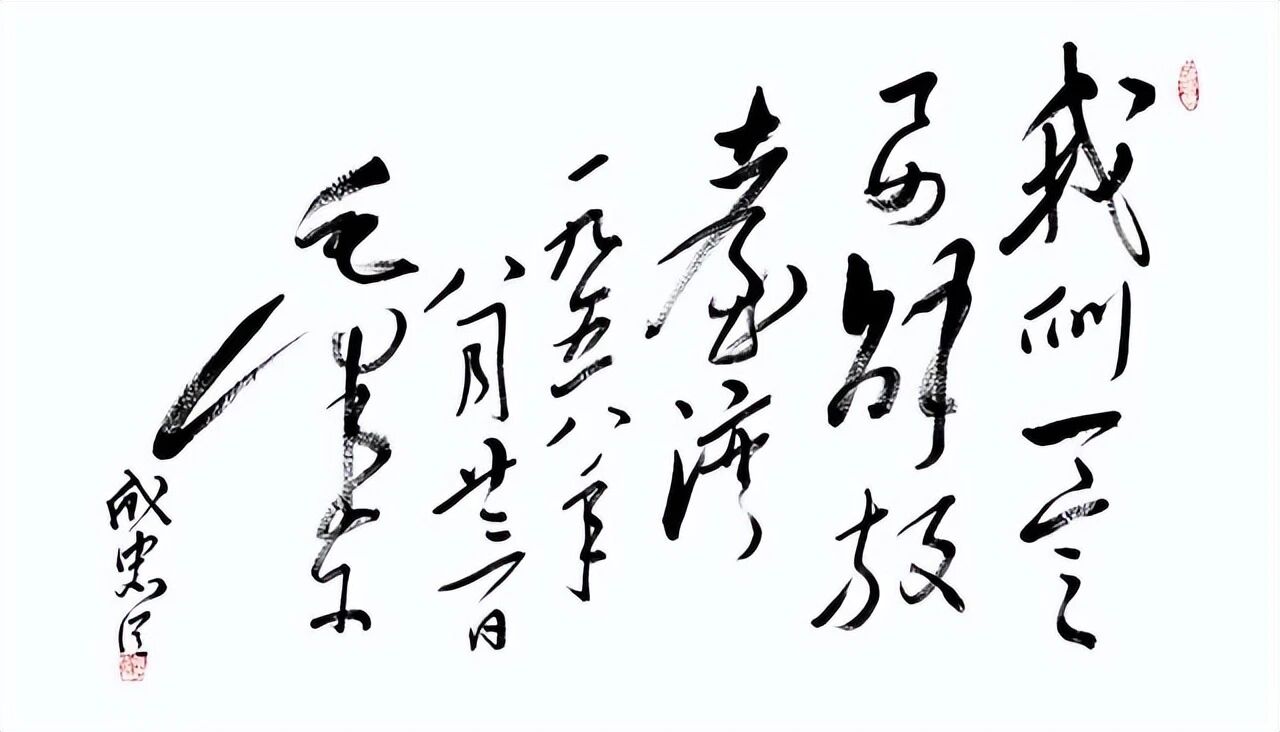 我们一定
要解放
臺灣
一九五八年
八月廿三日
毛泽东
成忠臣